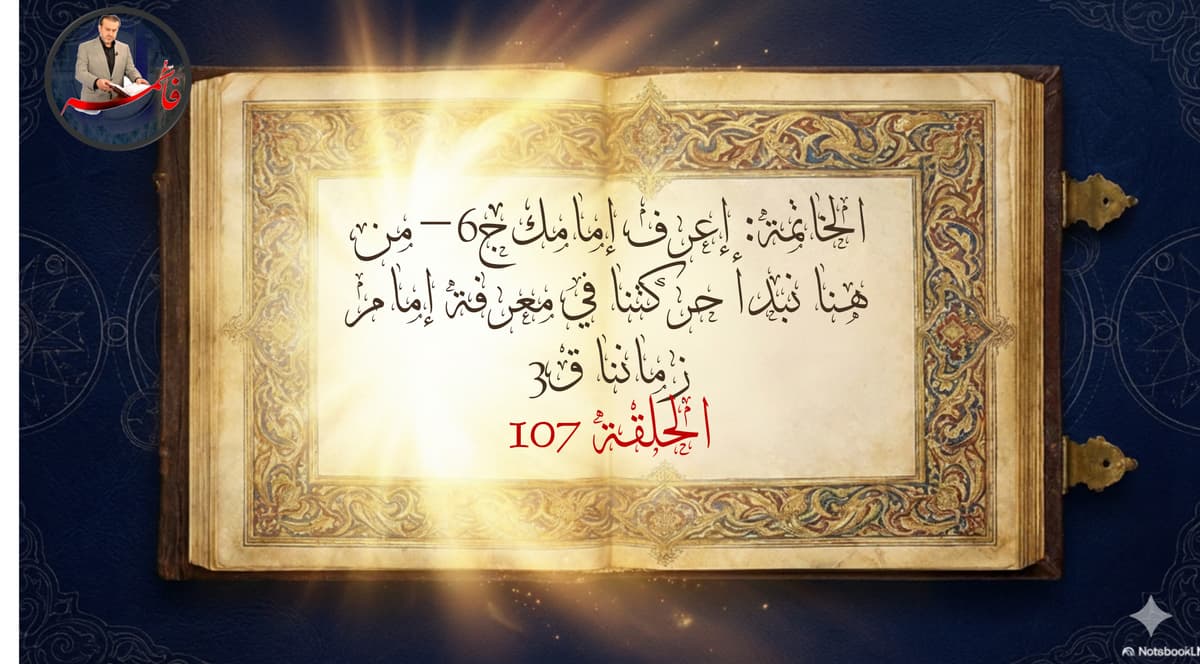 فاطمة
الخاتمة: إعرف إمامك ج6 – من
هنا نبدأ حركتنا في معرفة إمام
زماننا ق3
الحلقة 107
NotsbookL